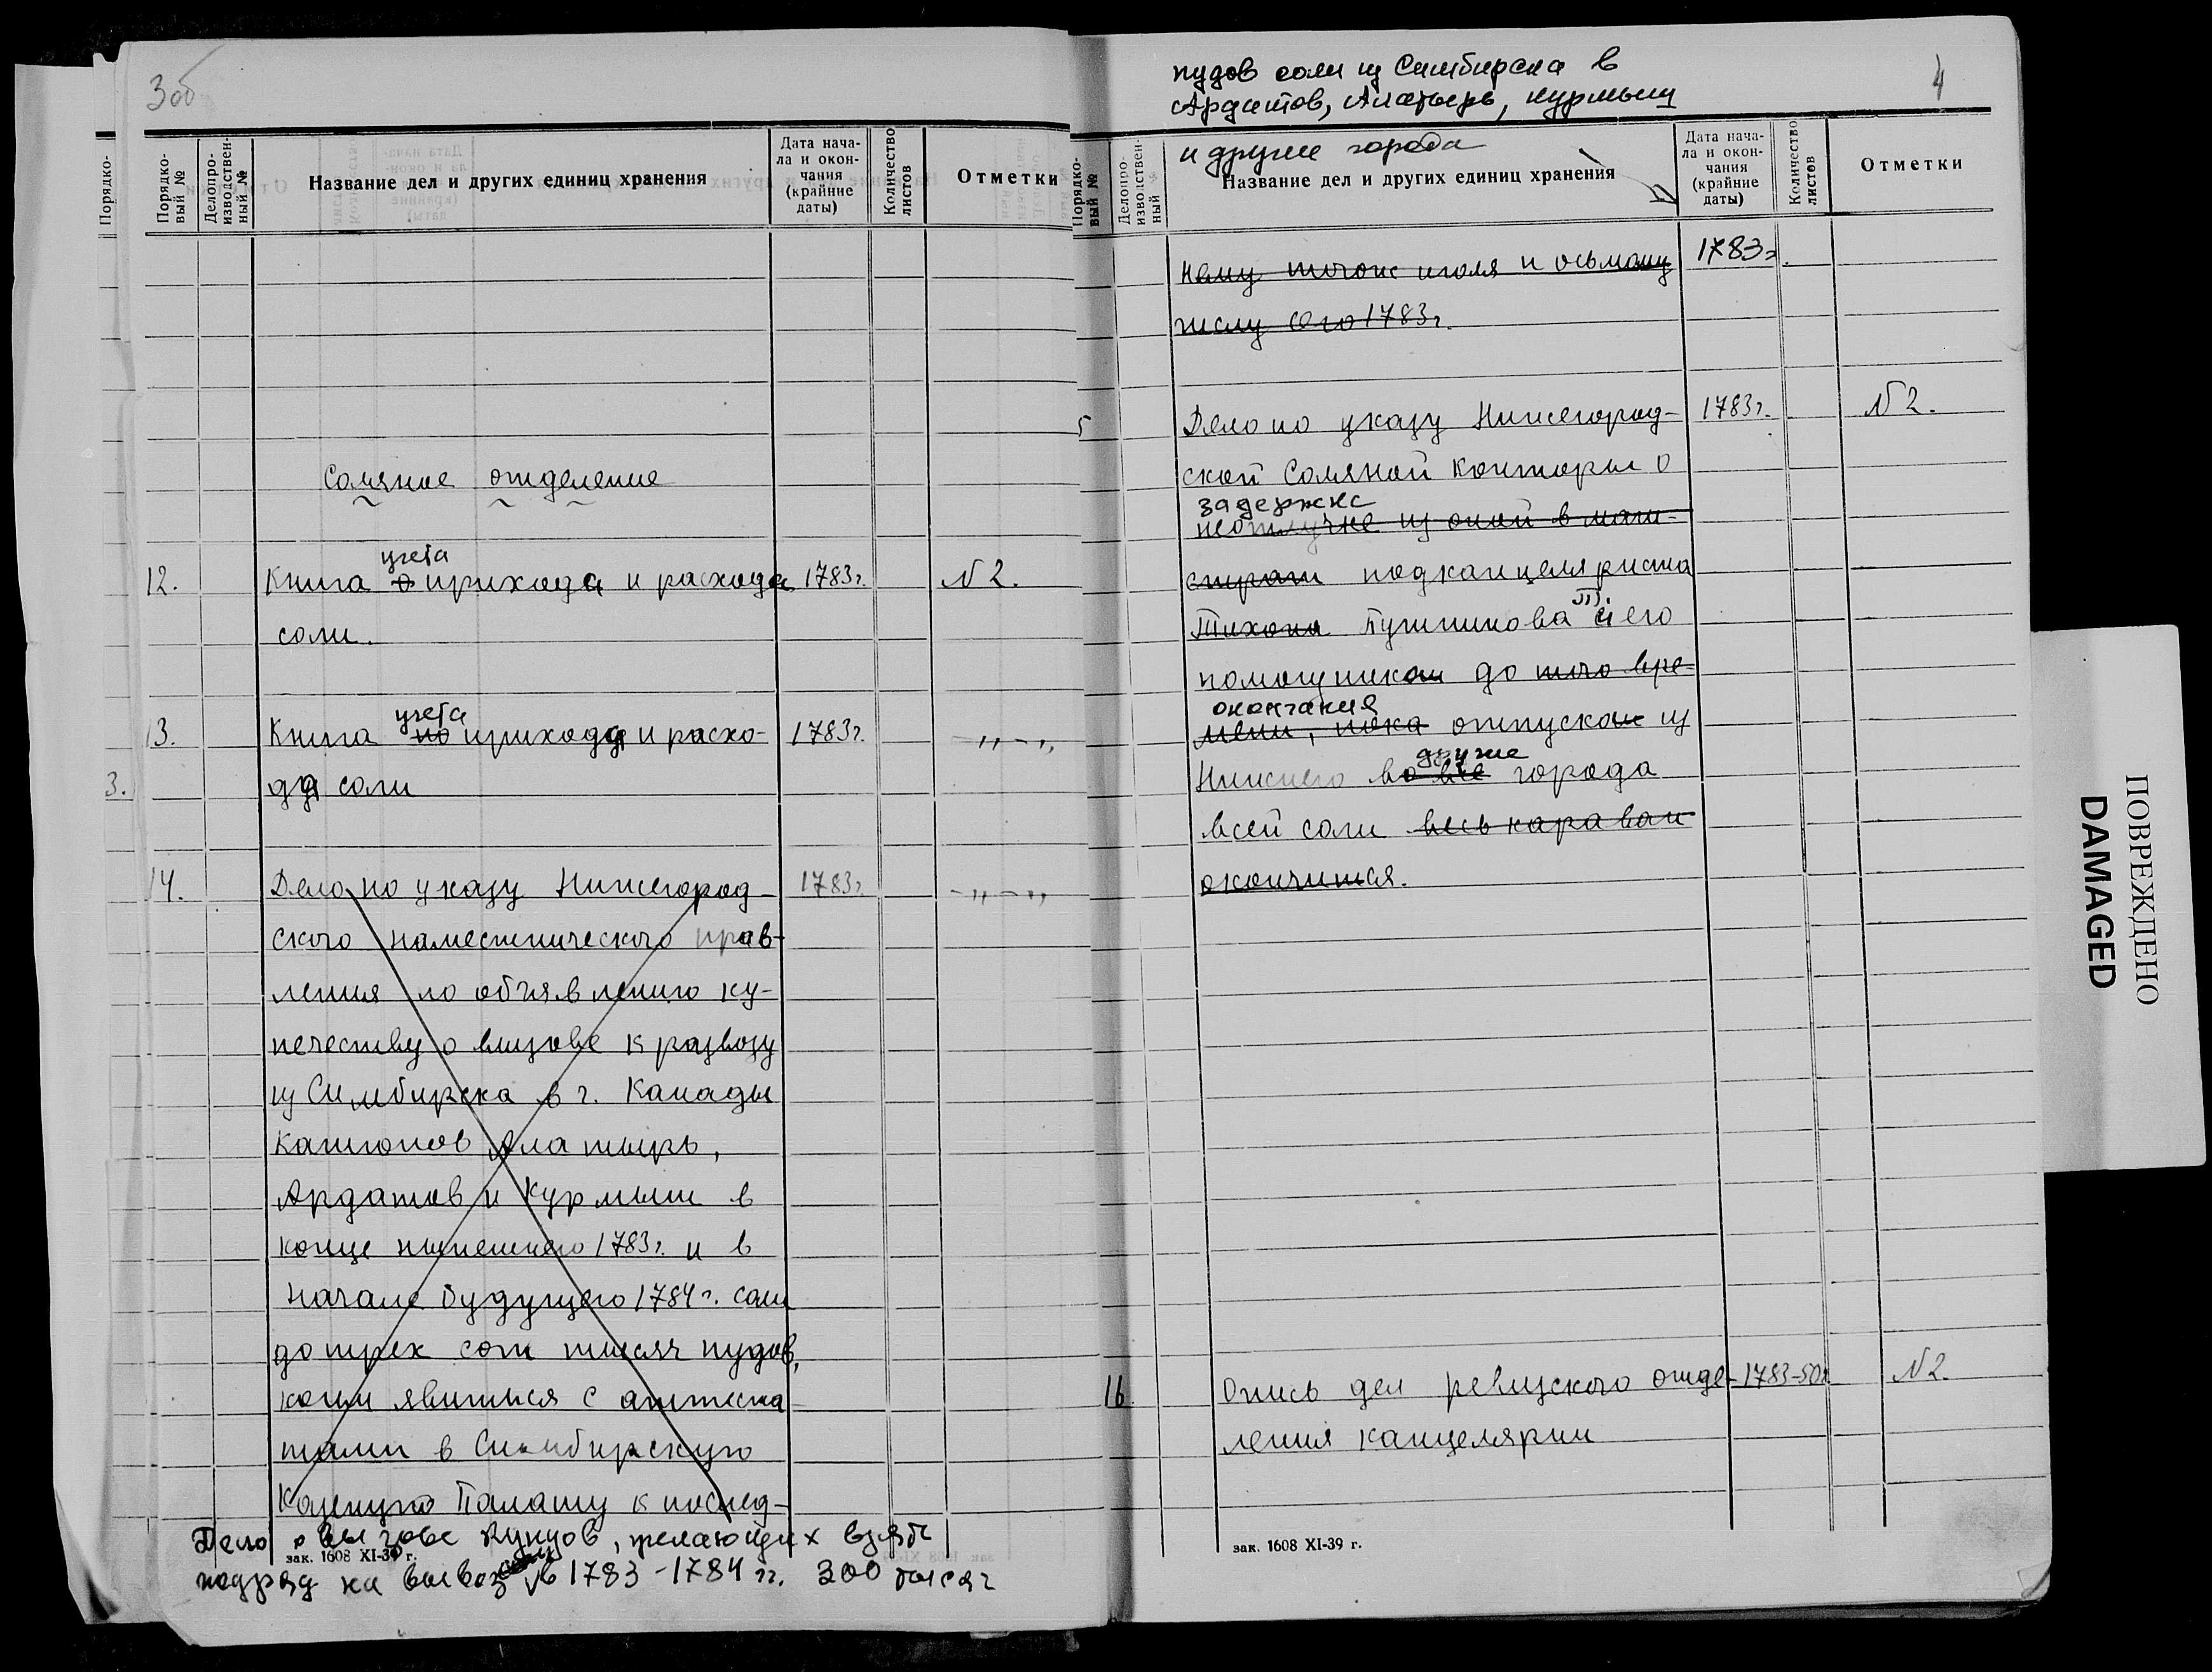 3об
Порядко-
Порядко-
вый №
Делопро-
изводствен-
ный №
Название дел и других единиц хранения
Дата нача-
ла и окон-
чания
(крайние
даты)
Количество
листов
Отметки
Соляное отделение
учета
12. Книга о прихода и расхода 1783г. N 2.
соли.
учета
13. Книга по прихода и расхо- 1783г. -„-„
да соли
3.
14. Дело по указу Нижегород- 1783г. -„-„
ского наместнического прав-
ления по объявлению ку-
печеству о вызове к развозу
из Симбирска в г. Канады
Каштопов Алатырь,
Ардатов и Курмыш в
конце нынешнего 1783г. и в
начале будущего 1784г. соли
до трех сот тысяч пудов,
коим явиться с аттеста-
тами в Симбирскую
Казенную Палату к послед-
Дело о вызове купцов, желающих взять
зак. 1608 XI-39 г.
подряд на вывоз в 1783-1784 гг. 300 тысяч
пудов соли из Симбирска в
Ардатов, Алатырь, Курмыш
4
и другие города
Порядко-
вый №
Делопро-
изводствен-
ный №
Название дел и других единиц хранения
Дата нача-
ла и окон-
чания
(крайние
даты)
Количество
листов
Отметки
нему того июля и осьмому 1783г.
числу сего 1783г.
5 Дело по указу Нижегород- 1783г. N 2.
ской Соляной конторы о
задержке
неотлучке из оной в маги-
страт подканцеляриста
Тихона Пушникова Т. и его
помощником до того вре-
окончания
мени, пока отпуском из
другие
Нижнего во все города
всей соли весь караван
окончится.
16. Опись дел ревизского отде- 1783-50г. N2.
ления канцелярии
зак. 1608 XI-39 г.
ПОВРЕЖДЕНО
DAMAGED